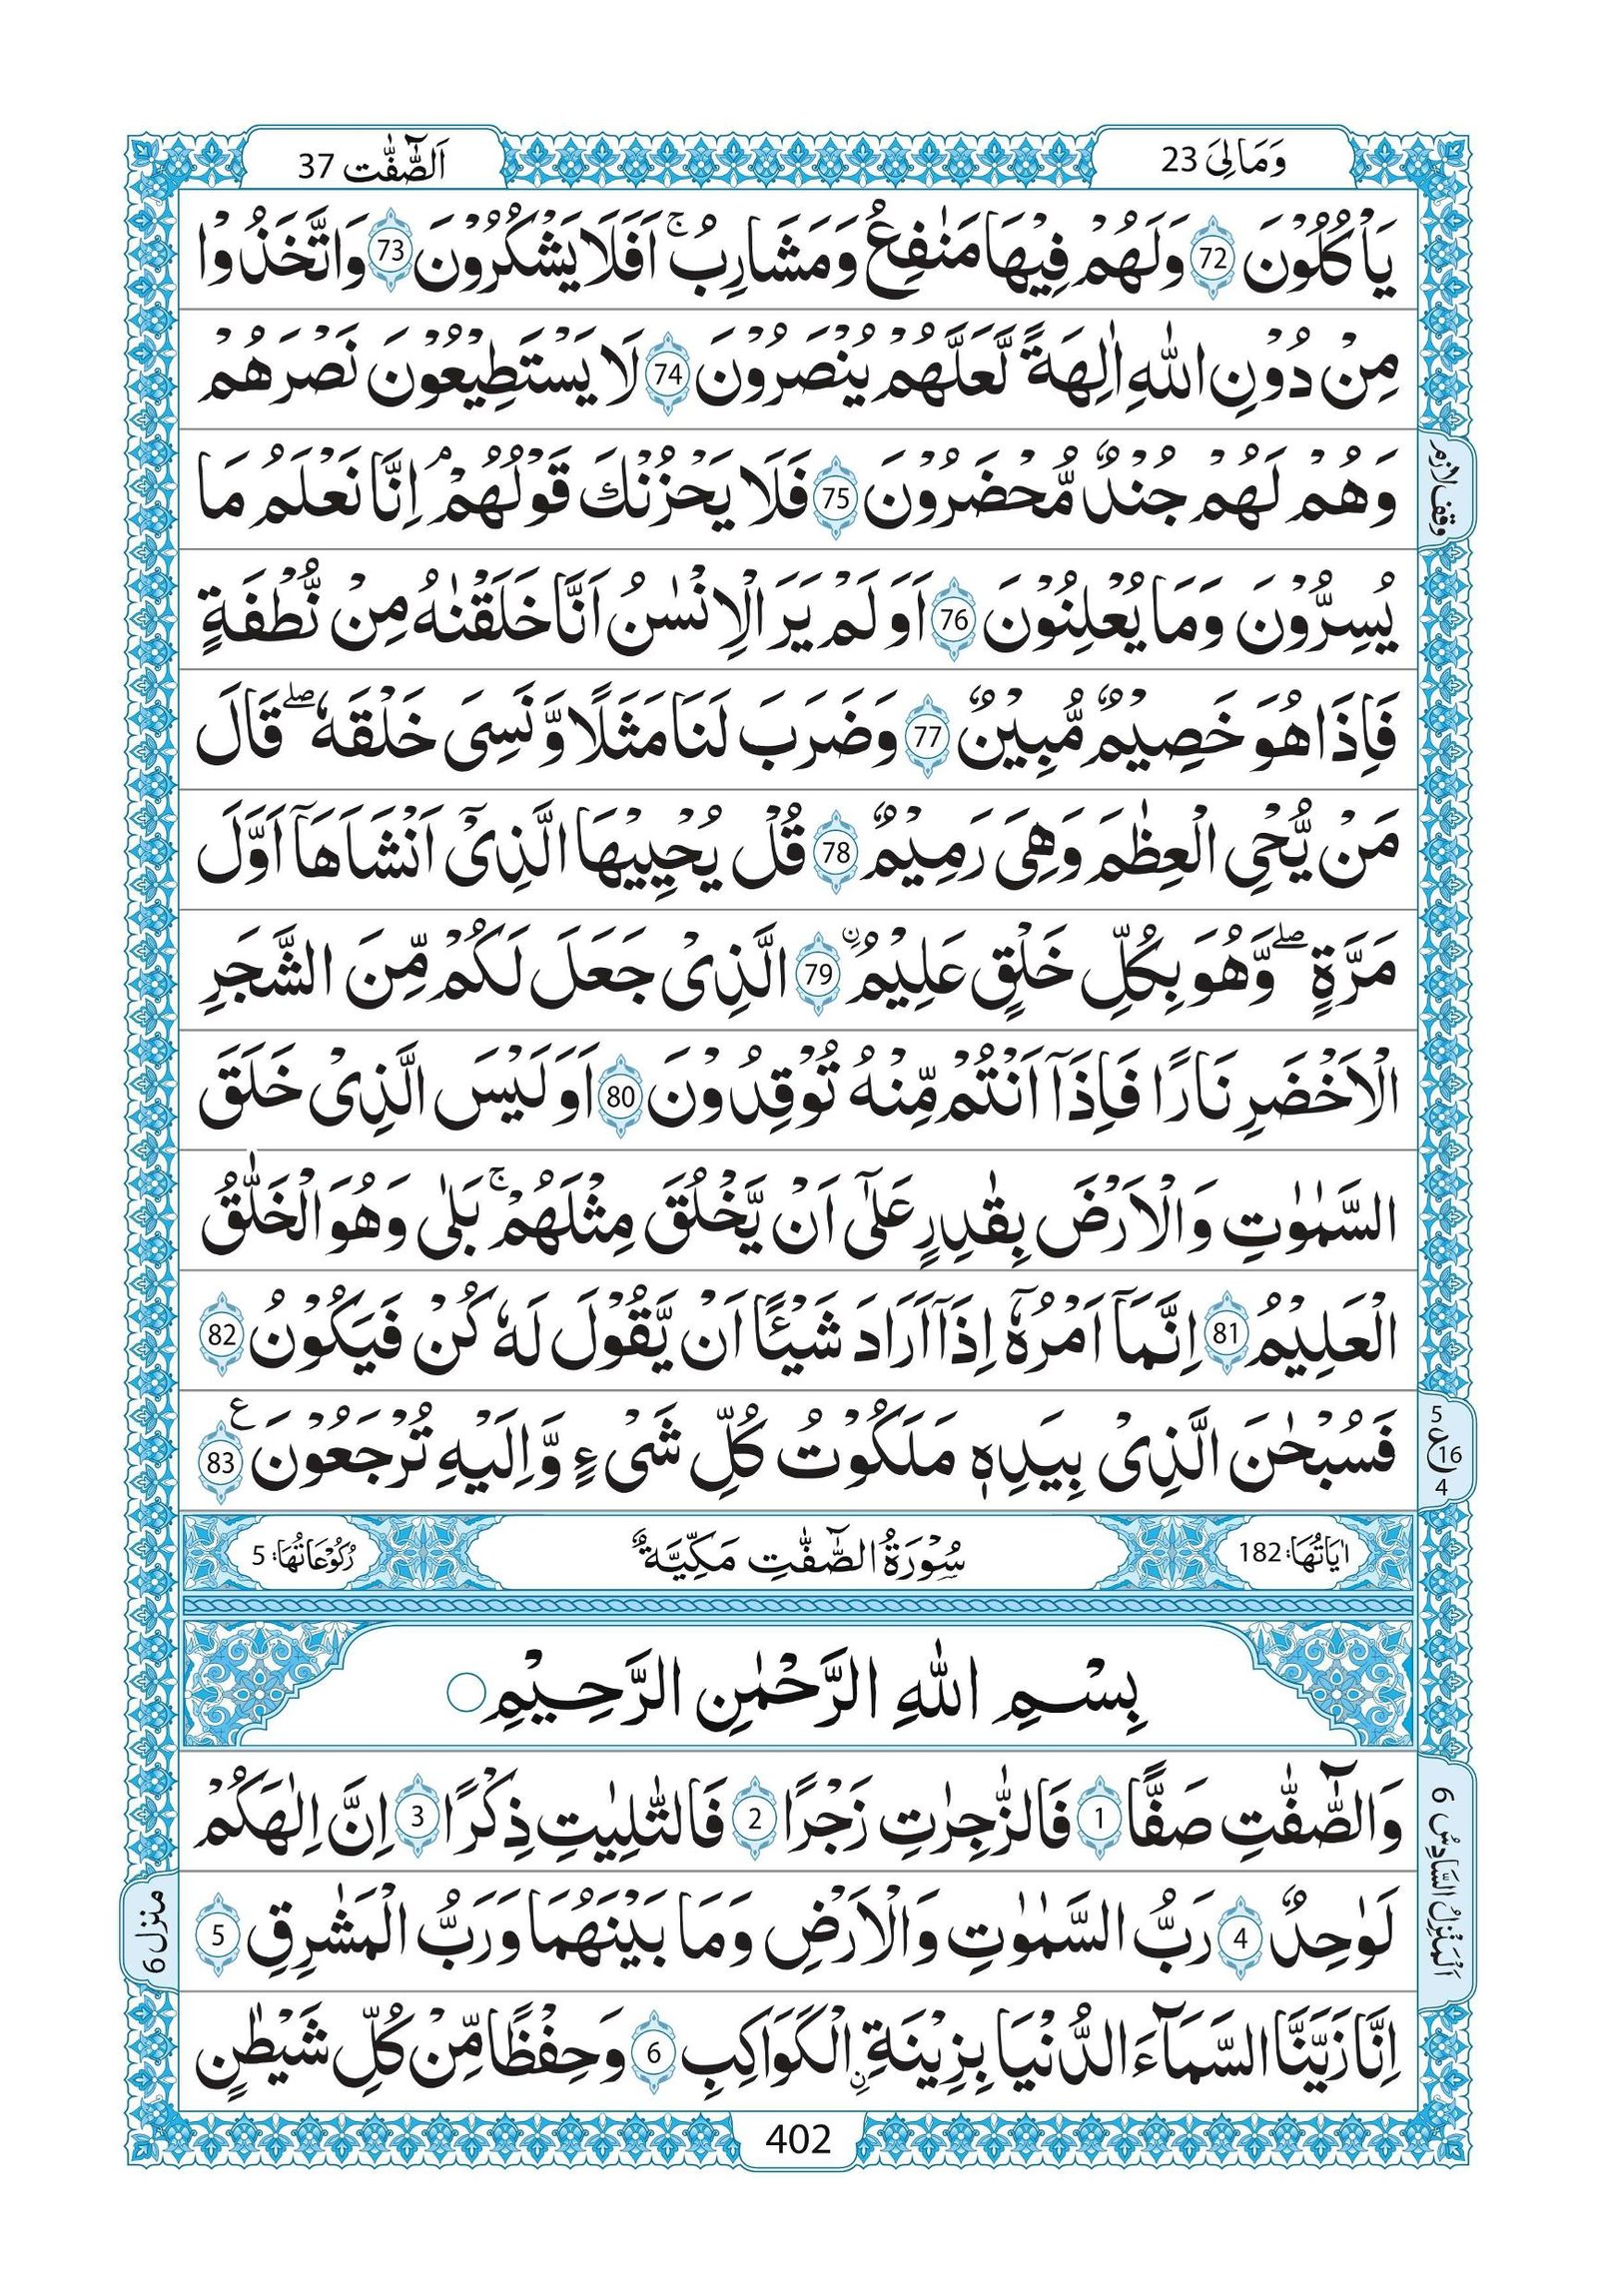 وَمَالِیَ 23
اَلصّٰٓفّٰت 37
یَاْكُلُوْنَ 72 وَلَهُمْ فِیْهَا مَنٰفِعُ وَمَشَارِبُ ۚ اَفَلَا یَشْكُرُوْنَ 73 وَاتَّخَذُوْا
مِنْ دُوْنِ اللّٰهِ اٰلِهَةً لَّعَلَّهُمْ یُنْصَرُوْنَ 74 لَا یَسْتَطِیْعُوْنَ نَصْرَهُمْ
وَهُمْ لَهُمْ جُنْدٌ مُّحْضَرُوْنَ 75 فَلَا یَحْزُنْكَ قَوْلُهُمْ ۘ اِنَّا نَعْلَمُ مَا
وقف لازم
یُسِرُّوْنَ وَمَا یُعْلِنُوْنَ 76 اَوَلَمْ یَرَ الْاِنْسٰنُ اَنَّا خَلَقْنٰهُ مِنْ نُّطْفَةٍ
فَاِذَا هُوَ خَصِیْمٌ مُّبِیْنٌ 77 وَضَرَبَ لَنَا مَثَلًا وَّنَسِیَ خَلْقَهٗ ۖ قَالَ
مَنْ یُّحْیِ الْعِظٰمَ وَهِیَ رَمِیْمٌ 78 قُلْ یُحْیِیْهَا الَّذِیْۤ اَنْشَاَهَاۤ اَوَّلَ
مَرَّةٍ ۖ وَّهُوَ بِكُلِّ خَلْقٍ عَلِیْمُ ۨ 79 الَّذِیْ جَعَلَ لَكُمْ مِّنَ الشَّجَرِ
الْاَخْضَرِ نَارًا فَاِذَاۤ اَنْتُمْ مِّنْهُ تُوْقِدُوْنَ 80 اَوَلَیْسَ الَّذِیْ خَلَقَ
السَّمٰوٰتِ وَالْاَرْضَ بِقٰدِرٍ عَلٰۤی اَنْ یَّخْلُقَ مِثْلَهُمْ ۚ بَلٰی وَهُوَ الْخَلّٰقُ
الْعَلِیْمُ 81 اِنَّمَاۤ اَمْرُهٗۤ اِذَاۤ اَرَادَ شَیْـًٔا اَنْ یَّقُوْلَ لَهٗ كُنْ فَیَكُوْنُ 82
فَسُبْحٰنَ الَّذِیْ بِیَدِهٖ مَلَكُوْتُ كُلِّ شَیْءٍ وَّاِلَیْهِ تُرْجَعُوْنَ ع 83
5
ع 16
4
اٰیَاتُهَا: 182
سُوْرَةُ الصّٰٓفّٰتِ مَكِّیَّةٌ
رُكُوْعَاتُهَا: 5
بِسْمِ اللّٰهِ الرَّحْمٰنِ الرَّحِیْمِ
وَالصّٰٓفّٰتِ صَفًّا 1 فَالزّٰجِرٰتِ زَجْرًا 2 فَالتّٰلِیٰتِ ذِكْرًا 3 اِنَّ اِلٰهَكُمْ
لَوٰحِدٌ 4 رَبُّ السَّمٰوٰتِ وَالْاَرْضِ وَمَا بَیْنَهُمَا وَرَبُّ الْمَشٰرِقِ 5
اِنَّا زَیَّنَّا السَّمَآءَ الدُّنْیَا بِزِیْنَةِ ۨ الْكَوَاكِبِ 6 وَحِفْظًا مِّنْ كُلِّ شَیْطٰنٍ
اَلْمَنْزِلُ السَّادِسُ 6
منزل 6
402